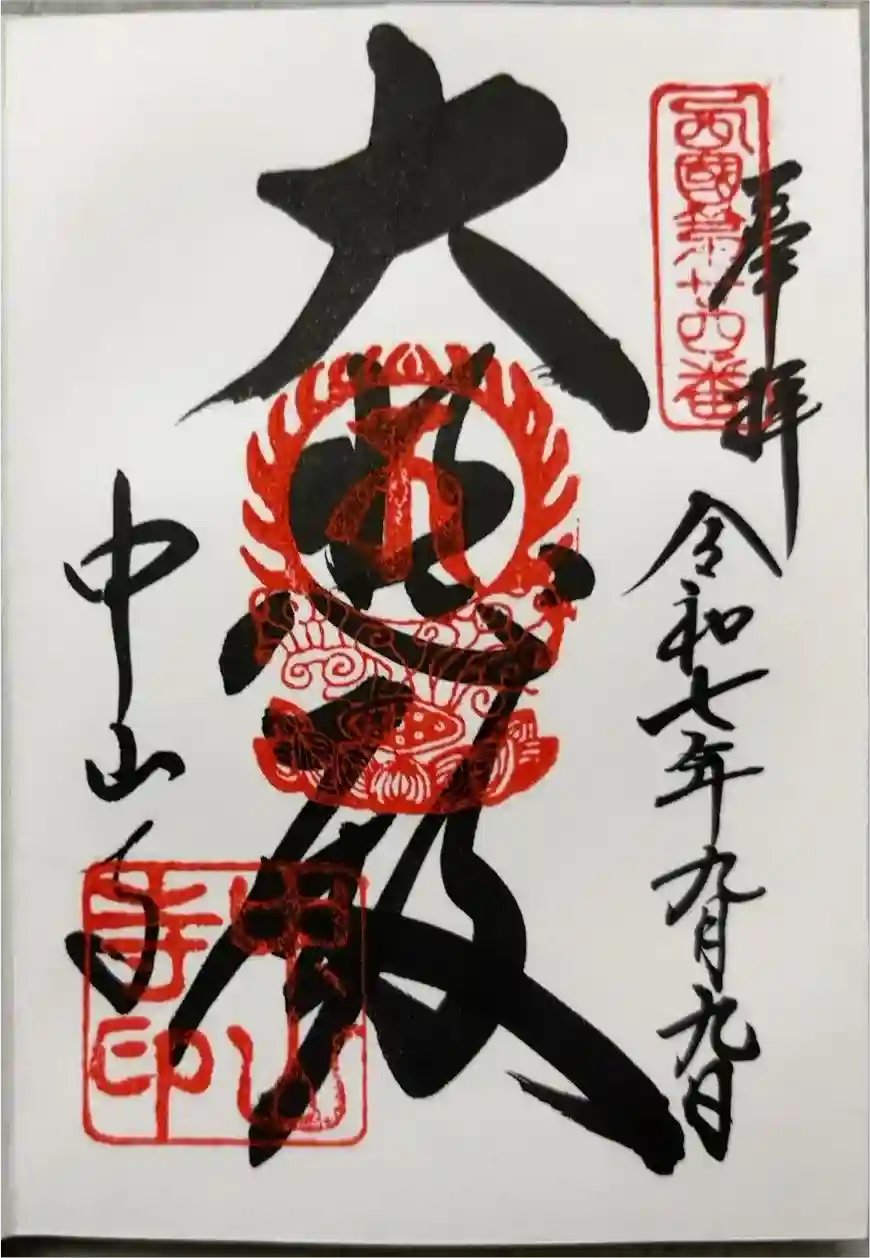 西國第廿四番
奉拝
令和七年九月九日
大悲殿
中山寺
中山
寺印